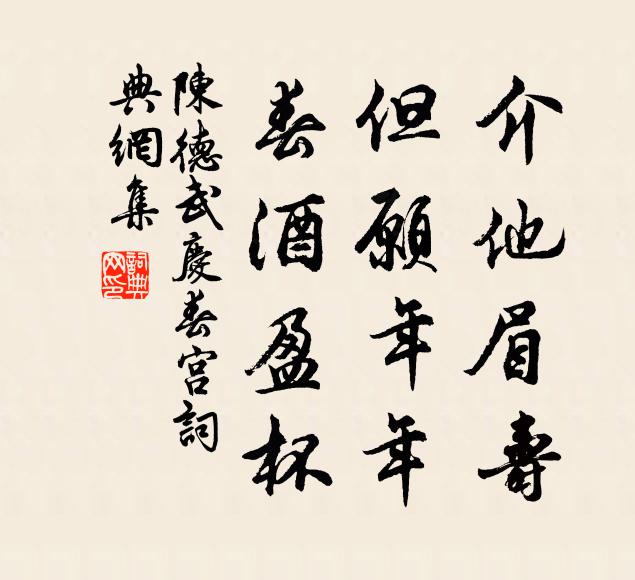 介他眉壽
但願年年
春酒盈杯
陳德武慶春宮詞
典網集
詞典
网印